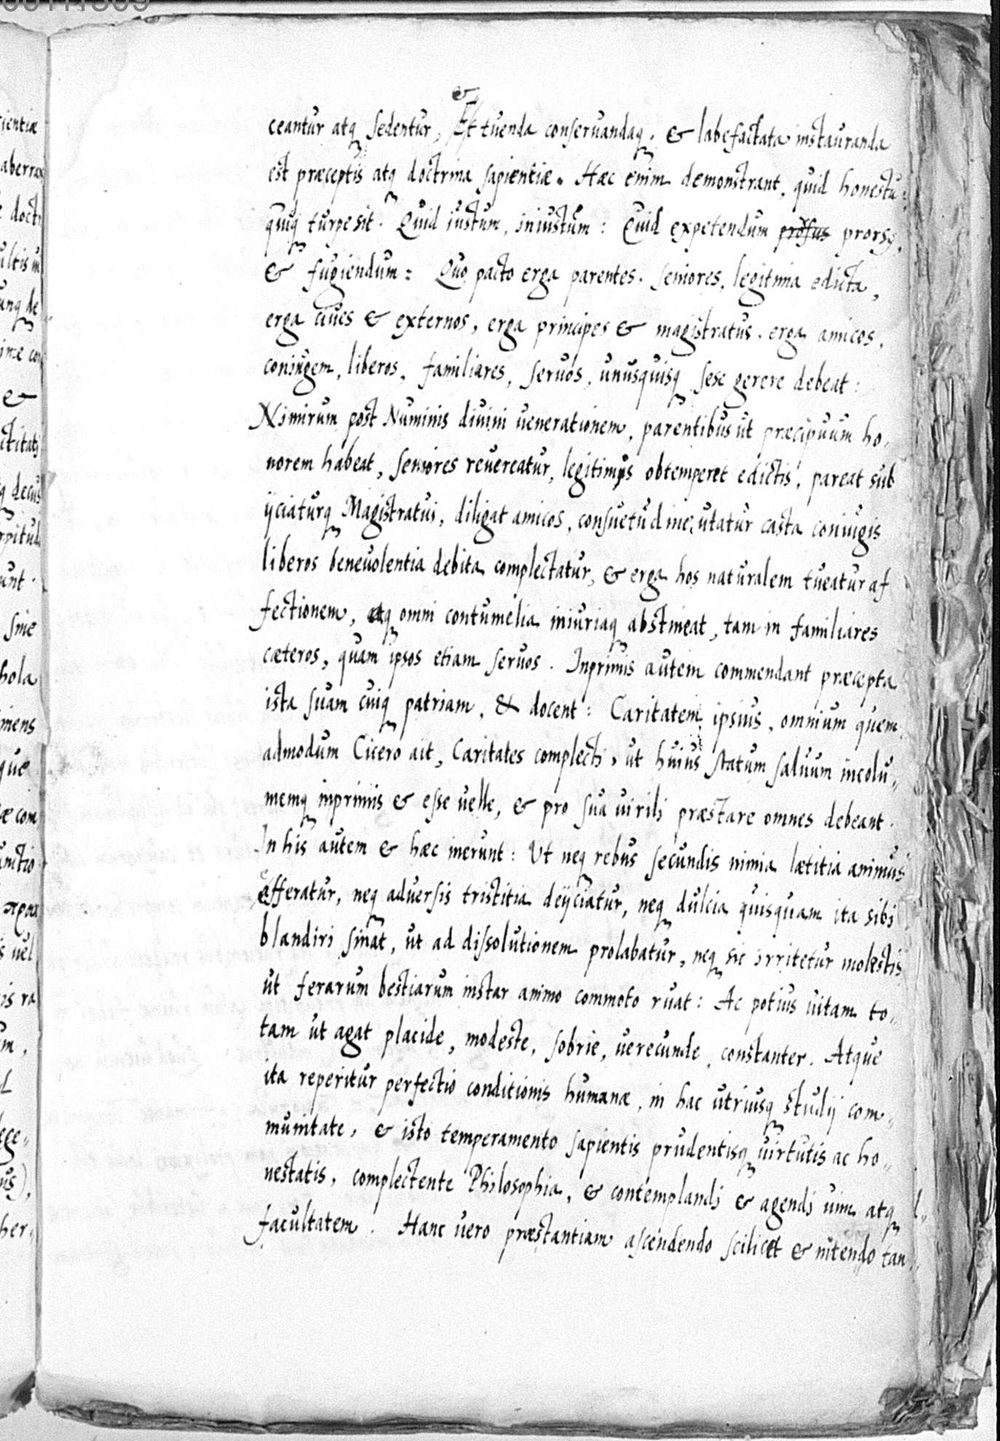 &
ceantur atq sedentur, Et tuenda conseruandaq, & labefactata instauranda
est præceptis atq doctrina sapientiæ. Hæc enim demonstrant, quid honestu:
quiq turpe sit. Quid iustum, iniustum: Quid expetendum profus prorsq,
& fugiendum: Quo pacto erga parentes. seniores, legitima edicta,
erga ciues & externos, erga principes & magistratus. erga amicos,
coniugem, liberos, familiares, seruos, unusquisq sese gerere debeat:
Nimirum post Numinis diuini uenerationem, parentibus ut præcipuum ho,
norem habeat, seniores reuereatur, legitimis obtemperet edictis, pareat sub
ijciaturq Magistratui, diligat amicos, consuetudine utatur casta coniugis
liberos beneuolentia debita complectatur, & erga hos naturalem tueatur af
fectionem, atq omni contumelia iniuriaq abstineat, tam in familiares
cæteros, quam ipsos etiam seruos. Inprimis autem commendant præcepta
ista suam cuiq patriam, & docent: Caritatem ipsius, omnium quem,
admodum Cicero ait, Caritates complecti, ut huius statum saluum incolu,,
memq inprimis & esse uelle, & pro sua uirili præstare omnes debeant.
In his autem & hæc inerunt: Ut neq rebus secundis nimia lætitia animus
efferatur, neq aduersis tristitia deijciatur, neq dulcia quisquam ita sibi
blandiri sinat, ut ad dissolutionem prolabatur, neq sic irritetur molestis
ut ferarum bestiarum instar animo commoto ruat: Ac potius uitam to,,
tam ut agat placide, modeste, sobrie, uerecunde, constanter. Atque
ita reperitur perfectio conditionis humanæ, in hac utriusq studij com,,
munitate, & isto temperamento sapientis prudentisq uirtutis ac ho,,
nestatis, complectente Philosophia, & contemplandi & agendi uim atq
facultatem. Hanc uero præstantiam ascendendo scilicet & nitendo tan